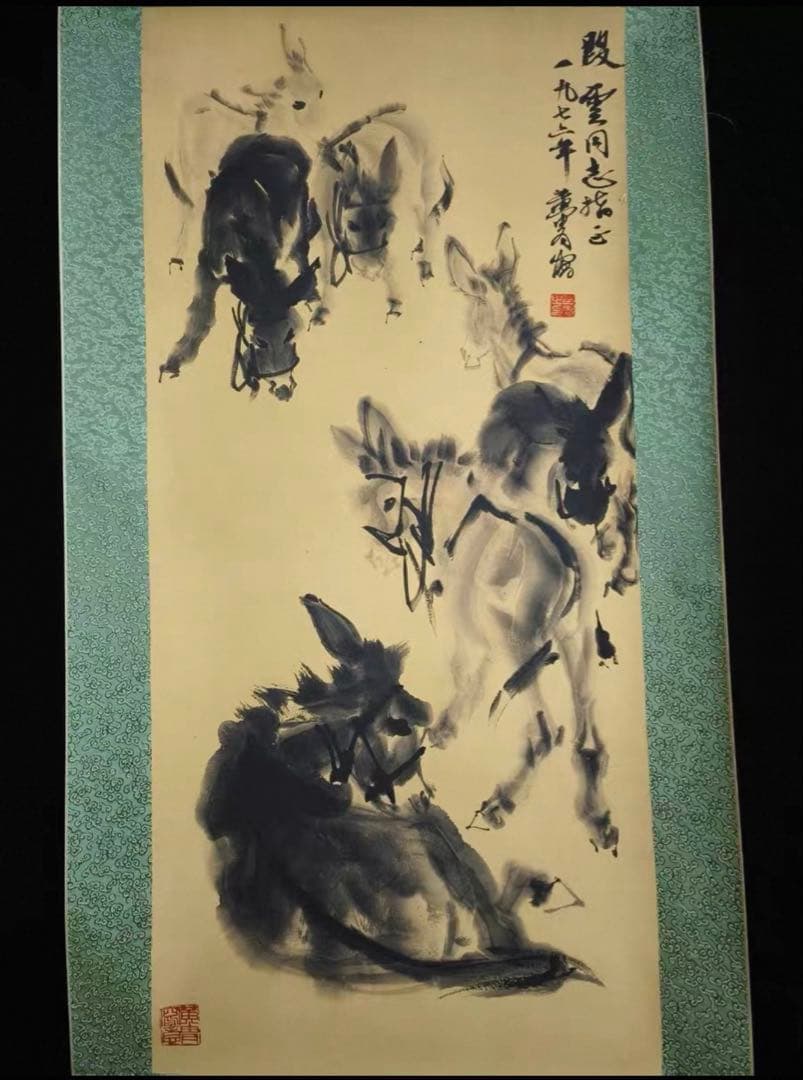 段雲同志指正
一九七六年 黄胄写